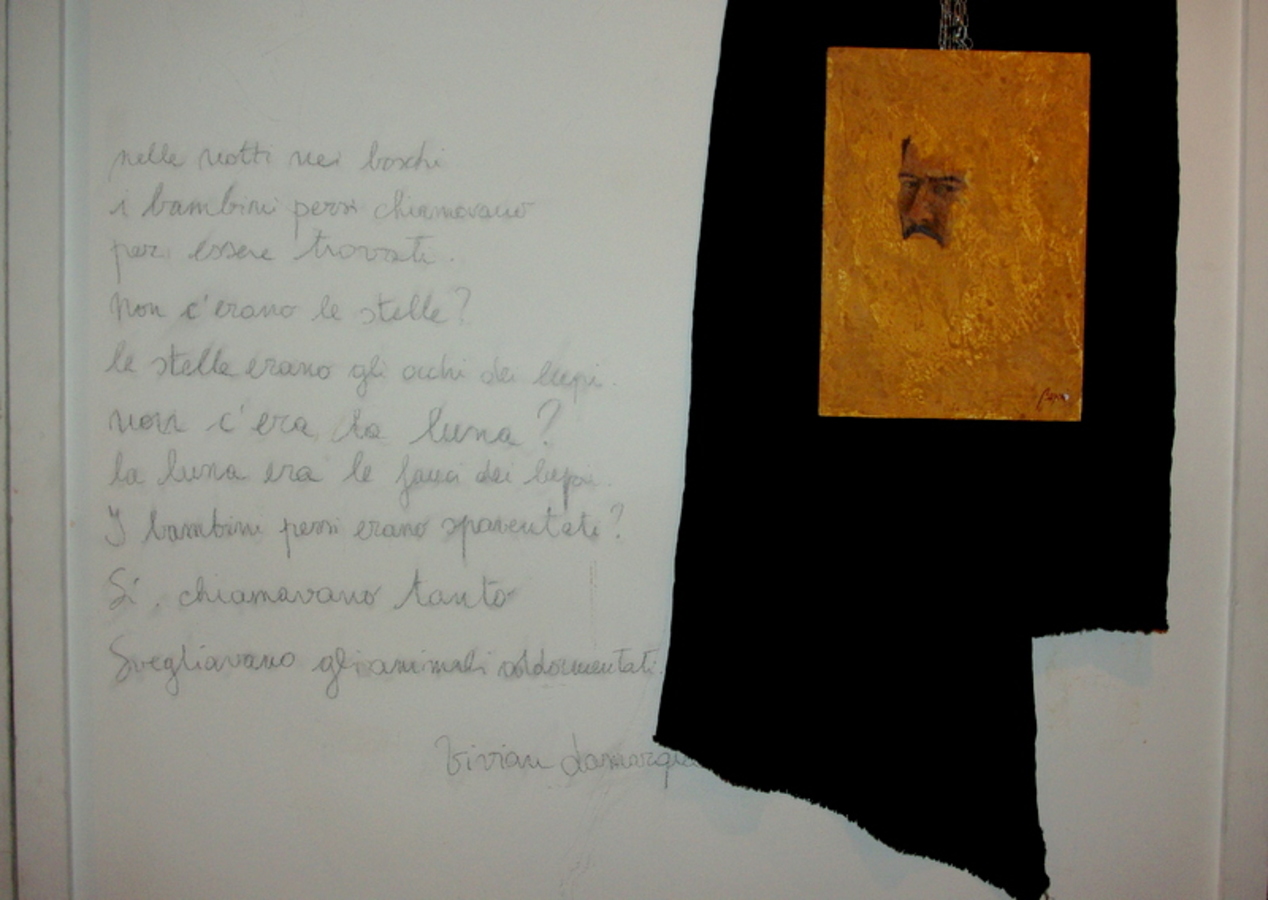 nelle notti nei boschi
i bambini persi chiamavano
per essere trovati.
Non c'erano le stelle?
le stelle erano gli occhi dei lupi.
non c'era la luna?
la luna era le fauci dei lupi.
I bambini persi erano spaventati?
Sì, chiamavano tanto
Svegliavano gli animali addormentati.
Vivian Lamarque